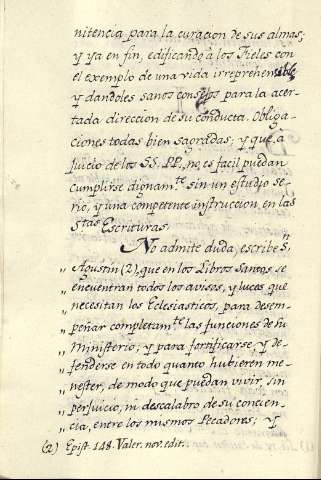 nitencia para la curacion de sus almas;
y ya en fin, edificando à los Fieles con
el exemplo de una vida irreprehensible,
y dandoles sanos consejos para la acer-
tada direccion de su conducta. Obliga-
ciones todas bien sagradas; y que, à
juicio de los SS. PP., no es facil puedan
cumplirse dignam.te sin un estudio se-
rio, y una competente instruccion en las
Stas Escrituras.
No admite duda, escribe S.n
„ Agustin (2), que en los Libros Santos se
„ encuentran todos los avisos, y luces que
„ necesitan los Eclesiasticos, para desem-
„ peñar completam.te las funciones de su
„ Ministerio; y para fortificarse, y de-
„ fenderse en todo quanto hubieren me-
„ nester, de modo que puedan vivir, sin
„ perjuicio, ni descalabro de su concien-
„ cia, entre los mismos Pecadores; y
(2) Epist. 148. Valer. nov. edit.